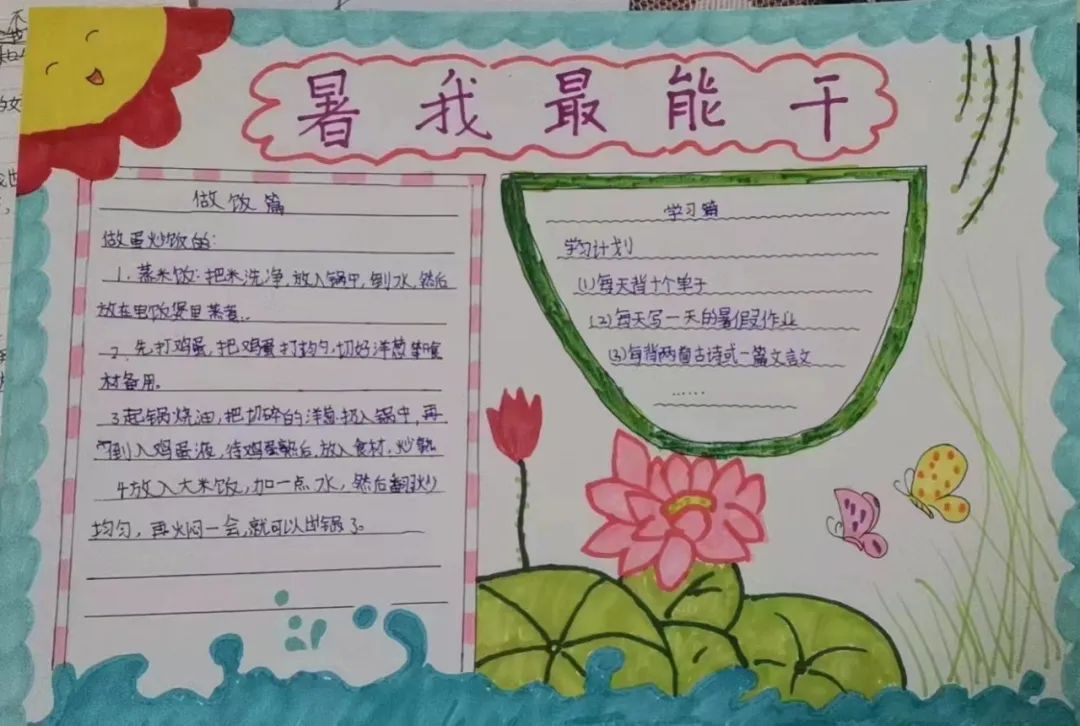 暑我最能干
做饭篇
做蛋炒饭的:
1、蒸米饭:把米洗净,放入锅中,倒水,然后
放在电饭煲里蒸煮..
2、先打鸡蛋,把鸡蛋打均匀,切好洋葱等食
材备用。
3起锅烧油,把切碎的洋葱扔入锅中,再
倒入鸡蛋液,待鸡蛋熟后,放入食材,炒熟
4放入大米饭,加一点水,然后翻炒
均匀,再火闷一会,就可以出锅了。
学习篇
学习计划
(1)每天背十个单子
(2)每天写一天的暑假作业
(3)每背两首古诗或一篇文言文
……